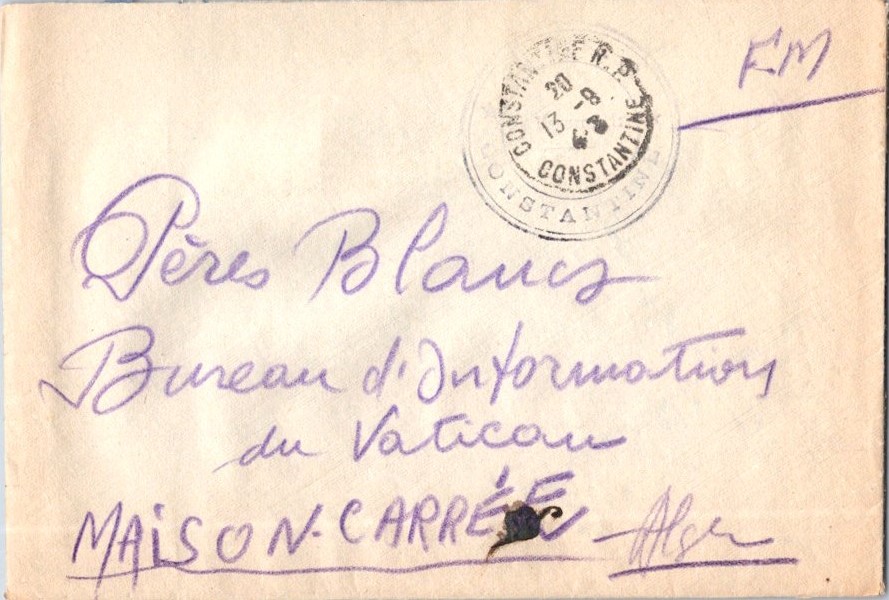 FM
CONSTANTINE R.P
20
13 -8
43
CONSTANTINE
CONSTANTINE
Pères Blancs
Bureau d'Information
du Vatican
MAISON-CARRÉE - Alger